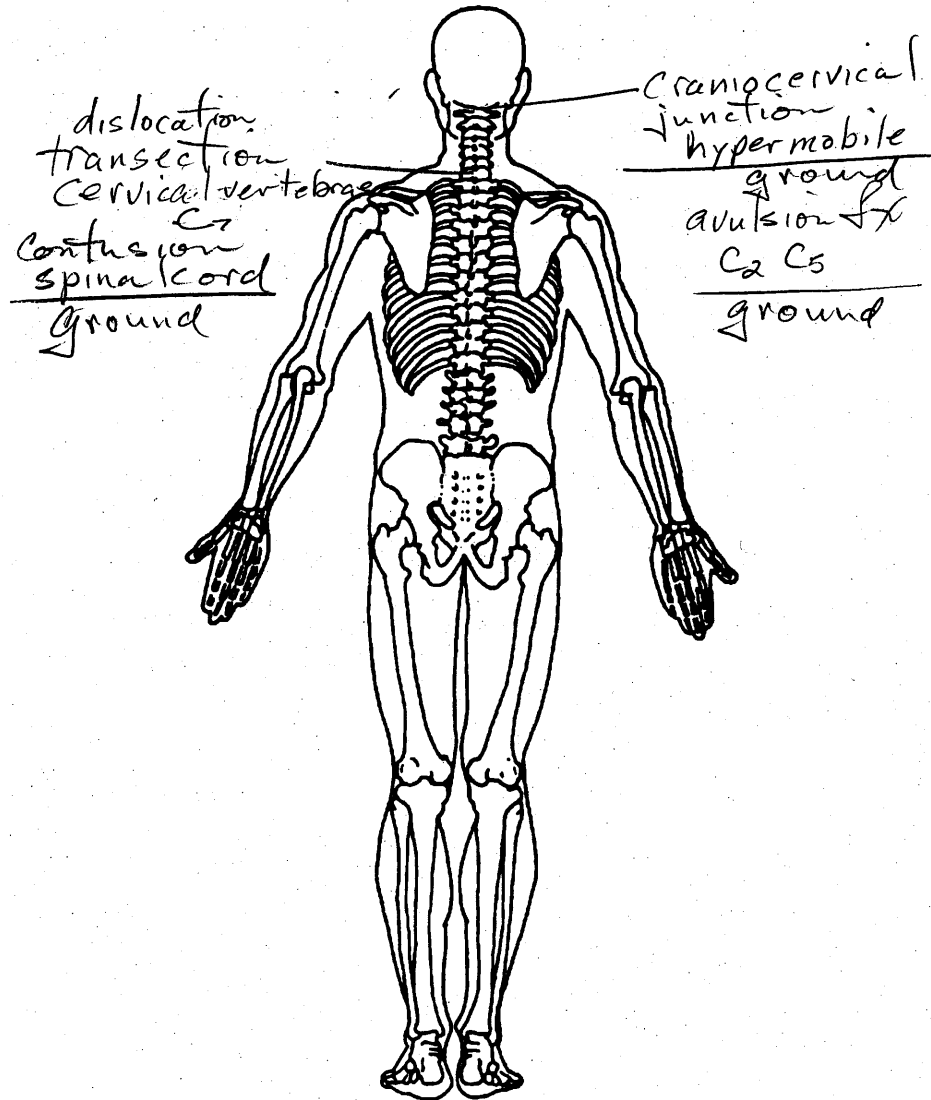 dislocation
transection
cervical vertebrae
C7
contusion
spinal cord
ground
craniocervical
junction
hypermobile
ground
avulsion fx
C2 C5
ground